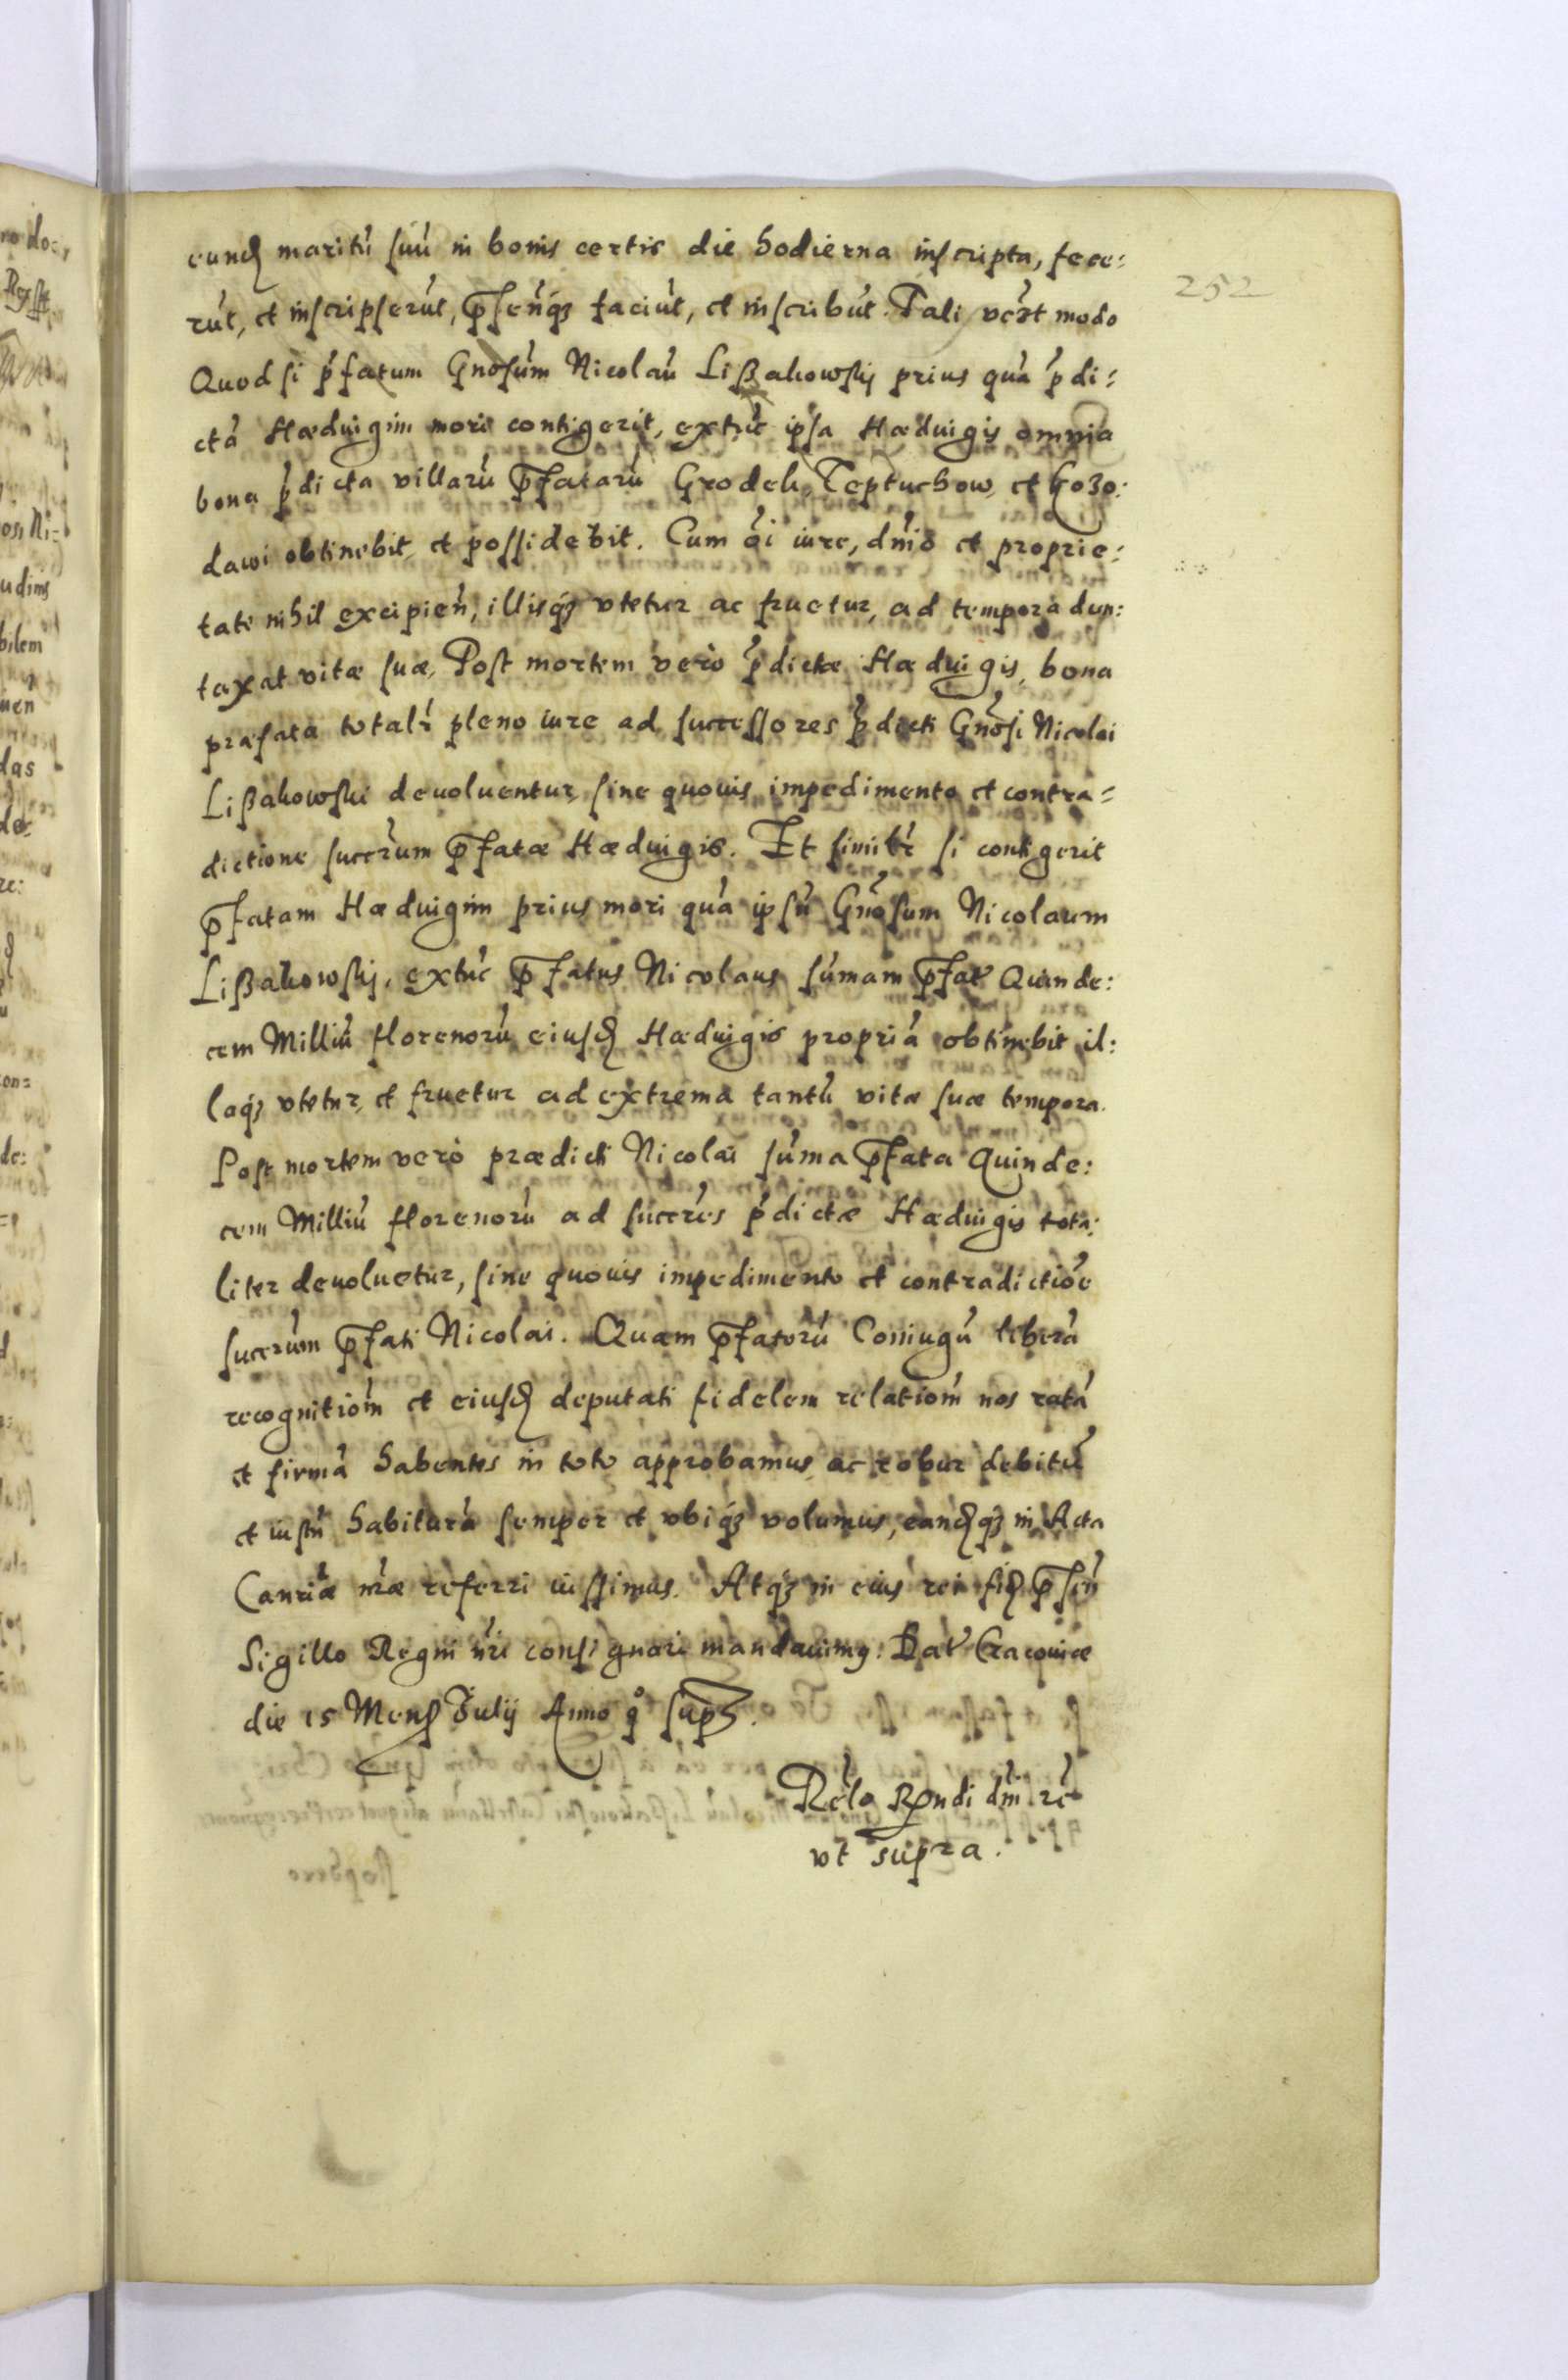 252
eund maritū suū in bonis certis die hodierna inscripta, fece:
rūt, et inscripserūt, p̄senq3 faciūt, et inscribūt. Tali vert modo
Quod si p̄fatum Gnosum Nicolaū Lißakowskij prius quā p̄di:
ctā Hæduigim mori contigerit, extūc ipsa Hæduigis omnia
bona p̄dicta villarū p̄fatarū Grodek, Teptuchow, et Gozo:
dawi obtinebit et possidebit. Cum oi iure, dnio et proprie:
tate nihil excipien, illisq3 vtetur ac fruetur, ad tempora dun:
taxat vitæ suæ, Post mortem verò p̄dictæ Hæduigis, bona
præfata totalr pleno iure ad successores p̄dicti Gnosi Nicolai
Lißakowski deuoluentur, sine quouis impedimento et contra:
dictione succrum p̄fatæ Hæduigis. Et simitr si contigerit
p̄fatam Hæduigim prius mori quā ipsū Gnosum Nicolaum
Lißakowskij, extūc p̄fatus Nicolaus sūmam p̄fat Quinde:
cem Milliū florenorū eiusd Hæduigis propriā obtinebit il:
laq3 vtetur, et fruetur ad extrema tantū vitæ suæ tempora.
Post mortem verò prædicti Nicolai sūma p̄fata Quinde:
cem Milliū florenorū ad succres p̄dictæ Hæduigis tota:
liter deuoluetur, sine quouis impedimento et contradictioe
succrum p̄fati Nicolai. Quam p̄fatorū Coniugū liberā
recognitiom et eiusd deputati fidelem relatiom nos ratā
et firmā habentes in toto approbamus ac robur debitū
et iustū habiturā semper et vbiq3 volumus, eandq3 in Acta
Canriæ nræ referri iussimus. Atq3 in eius rei fid p̄sen
Sigillo Regni nri consignari mandauimq. Dat Cracouiæ
die 15 Mens Julij Anno qo sup.
Rela Rndi dni. rc
vt supra.